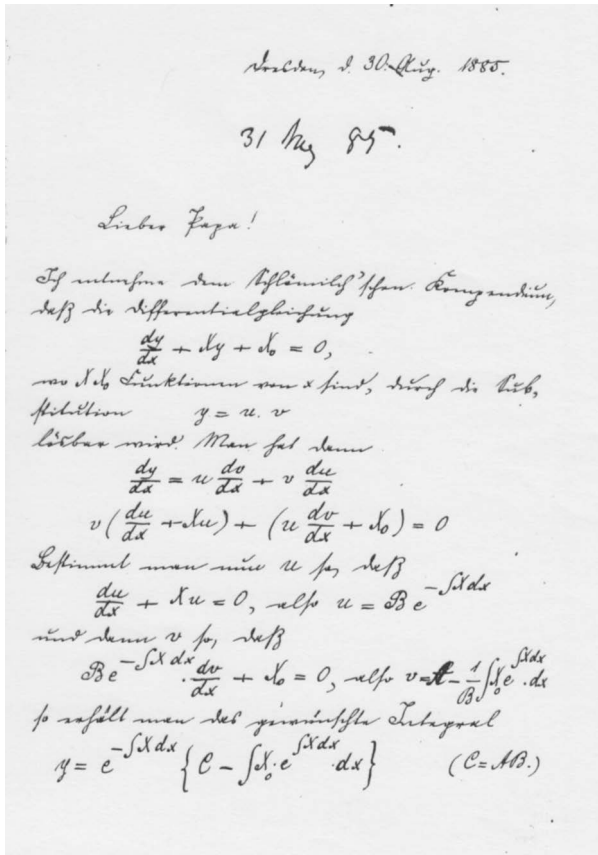 Dresden, d. 30. Aug. 1885.
31 Aug 85.
Lieber Papa!
Ich entnehme dem Schlömilch'schen Kompendium,
daß die Differentialgleichung
dy/dx + Xy + X₀ = 0,
wo X X₀ Funktionen von x sind, durch die Sub-
stitution y = u. v
lösbar wird. Man hat dann
dy/dx = u dv/dx + v du/dx
v(du/dx + Xu) + (u dv/dx + X₀) = 0
Bestimmt man nun u so, daß
du/dx + Xu = 0, also u = Be^(-∫Xdx)
und dann v so, daß
Be^(-∫Xdx) . dv/dx + X₀ = 0, also v = A - 1/B ∫X₀e^(∫Xdx) . dx
so erhält man das gewünschte Integral
y = e^(-∫Xdx) {C - ∫X₀ . e^(∫Xdx) . dx} (C = AB.)